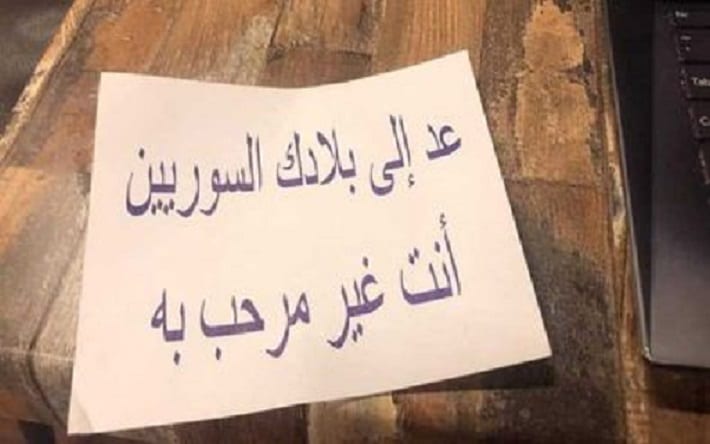 عد إلى بلادك السوريين
أنت غير مرحب به
Tab